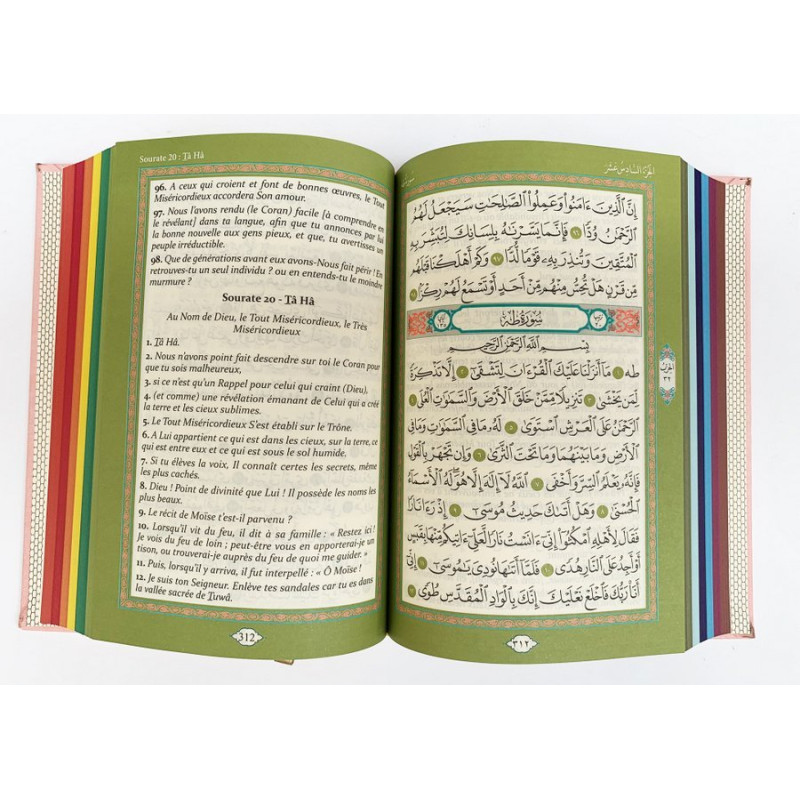 Sourate 20 : Ṭâ Hâ
96. A ceux qui croient et font de bonnes œuvres, le Tout
Miséricordieux accordera Son amour.
97. Nous l'avons rendu (le Coran) facile [à comprendre en
le révélant] dans ta langue, afin que tu annonces par lui
la bonne nouvelle aux gens pieux, et que, tu avertisses un
peuple irréductible.
98. Que de générations avant eux avons-Nous fait périr ! En
retrouves-tu un seul individu ? ou en entends-tu le moindre
murmure ?
Sourate 20 - Ṭâ Hâ
Au Nom de Dieu, le Tout Miséricordieux, le Très
Miséricordieux
1. Ṭâ Hâ.
2. Nous n'avons point fait descendre sur toi le Coran pour
que tu sois malheureux,
3. si ce n'est qu'un Rappel pour celui qui craint (Dieu),
4. (et comme) une révélation émanant de Celui qui a créé
la terre et les cieux sublimes.
5. Le Tout Miséricordieux S'est établi sur le Trône.
6. A Lui appartient ce qui est dans les cieux, sur la terre, ce
qui est entre eux et ce qui est sous le sol humide.
7. Si tu élèves la voix, Il connaît certes les secrets, même
les plus cachés.
8. Dieu ! Point de divinité que Lui ! Il possède les noms les
plus beaux.
9. Le récit de Moïse t'est-il parvenu ?
10. Lorsqu'il vit du feu, il dit à sa famille : « Restez ici !
Je vois du feu de loin ; peut-être vous en apporterai-je un
tison, ou trouverai-je auprès du feu de quoi me guider. »
11. Puis, lorsqu'il y arriva, il fut interpellé : « Ô Moïse !
12. Je suis ton Seigneur. Enlève tes sandales car tu es dans
la vallée sacrée de Ṭuwâ.
312
الجزء السادس عشر
إِنَّ الَّذِينَ ءَامَنُوا وَعَمِلُوا الصَّالِحَاتِ سَيَجْعَلُ لَهُمُ
الرَّحْمَٰنُ وُدًّا ٩٦ فَإِنَّمَا يَسَّرْنَاهُ بِلِسَانِكَ لِتُبَشِّرَ بِهِ
الْمُتَّقِينَ وَتُنذِرَ بِهِ قَوْمًا لُّدًّا ٩٧ وَكَمْ أَهْلَكْنَا قَبْلَهُم
مِّن قَرْنٍ هَلْ تُحِسُّ مِنْهُم مِّنْ أَحَدٍ أَوْ تَسْمَعُ لَهُمْ رِكْزًا ٩٨
سُورَةُ طه
بِسْمِ اللَّهِ الرَّحْمَٰنِ الرَّحِيمِ
طه ١ مَا أَنزَلْنَا عَلَيْكَ الْقُرْءَانَ لِتَشْقَىٰ ٢ إِلَّا تَذْكِرَةً
لِّمَن يَخْشَىٰ ٣ تَنزِيلًا مِّمَّنْ خَلَقَ الْأَرْضَ وَالسَّمَاوَاتِ الْعُلَى ٤
الرَّحْمَٰنُ عَلَى الْعَرْشِ اسْتَوَىٰ ٥ لَهُ مَا فِي السَّمَاوَاتِ وَمَا فِي
الْأَرْضِ وَمَا بَيْنَهُمَا وَمَا تَحْتَ الثَّرَىٰ ٦ وَإِن تَجْهَرْ بِالْقَوْلِ
فَإِنَّهُ يَعْلَمُ السِّرَّ وَأَخْفَى ٧ اللَّهُ لَا إِلَٰهَ إِلَّا هُوَ لَهُ الْأَسْمَاءُ
الْحُسْنَىٰ ٨ وَهَلْ أَتَاكَ حَدِيثُ مُوسَىٰ ٩ إِذْ رَءَا نَارًا
فَقَالَ لِأَهْلِهِ امْكُثُوا إِنِّي ءَانَسْتُ نَارًا لَّعَلِّي ءَاتِيكُم مِّنْهَا بِقَبَسٍ
أَوْ أَجِدُ عَلَى النَّارِ هُدًى ١٠ فَلَمَّا أَتَاهَا نُودِيَ يَامُوسَىٰ ١١ إِنِّي
أَنَا رَبُّكَ فَاخْلَعْ نَعْلَيْكَ إِنَّكَ بِالْوَادِ الْمُقَدَّسِ طُوًى ١٢
الحزب
٣٢
٣١٢